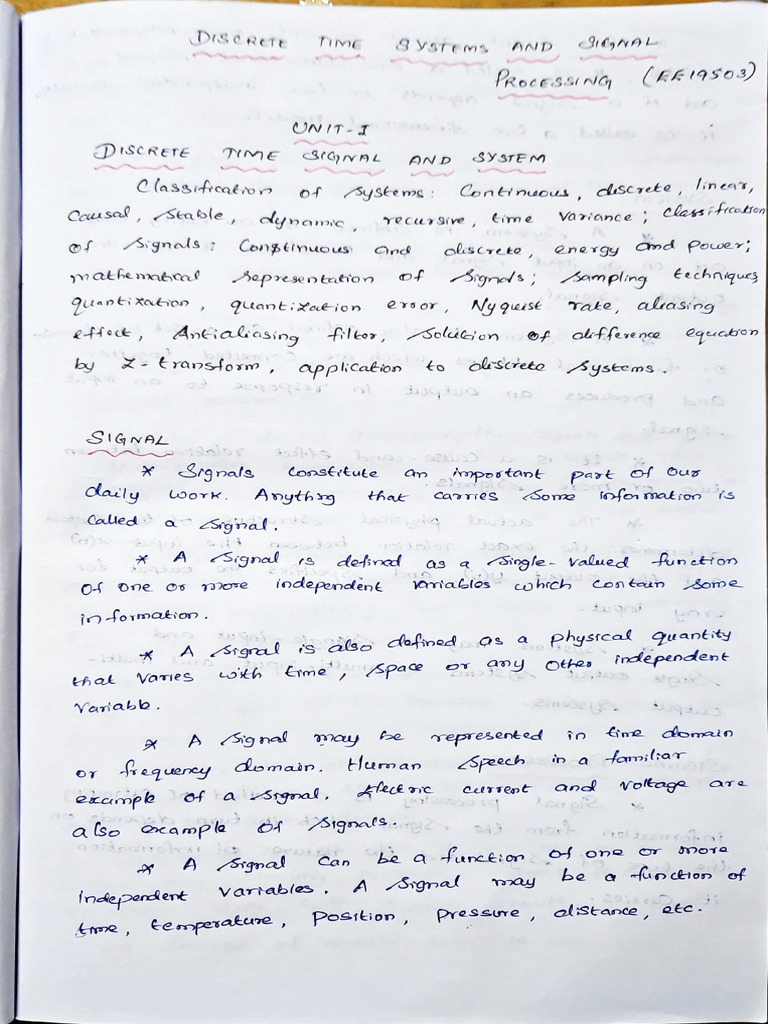 DISCRETE TIME SYSTEMS AND SIGNAL
PROCESSING (EE19503)
UNIT-I
DISCRETE TIME SIGNAL AND SYSTEM
Classification of systems: Continuous, discrete, linear,
Causal, stable, dynamic, recursive, time variance; classification
of signals: Continuous and discrete, energy and power;
mathematical representation of signals; sampling techniques,
quantization, quantization error, Nyquist rate, aliasing
effect, Antialiasing filter, solution of difference equation
by Z-transform, application to discrete systems.
SIGNAL
* Signals constitute an important part of our
daily work. Anythg that carries some information is
called a signal.
* A signal is defined as a single-valued function
of one or more independent variables which contain some
information.
* A signal is also defined as a physical quantity
that varies with time, space or any other independent
variable.
* A signal may be represented in time domain
or frequency domain. Human speech in a familiar
example of a signal. Electric current and voltage are
also example of signals.
* A signal can be a function of one or more
independent variables. A signal may be a function of
time, temperature, position, pressure, distance, etc.